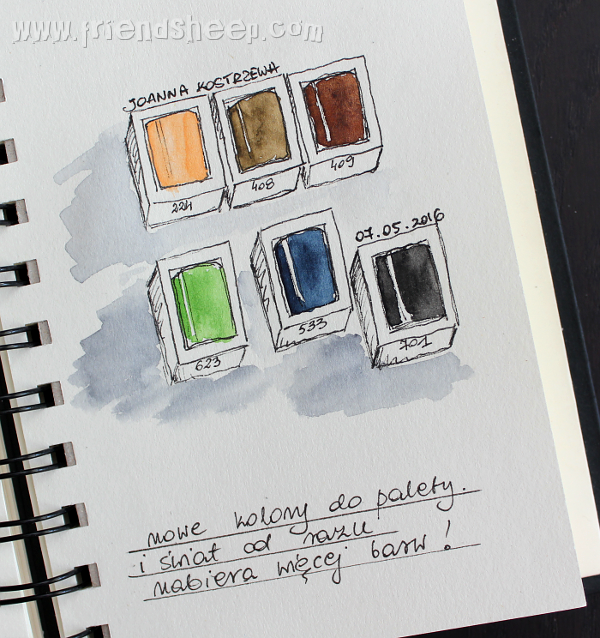 www.friendsheep.com
JOANNA KOSTRZEWA
224
408
409
07.05.2016
623
533
701
nowe kolory do palety.
i świat od razu
nabiera więcej barw!